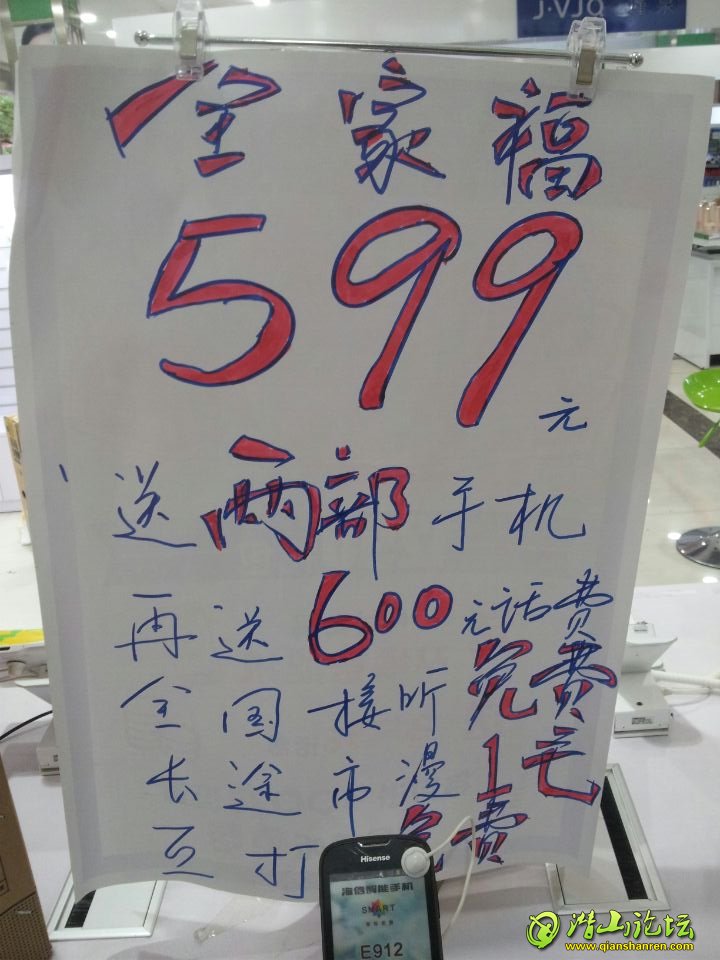 OLV·J
全家福
599元
送两部手机
再送600元话费
全国接听免费
长途市漫1毛
互打免费
Hisense
海信智能手机
SMART
E912
潜山论坛
www.qianshanren.com